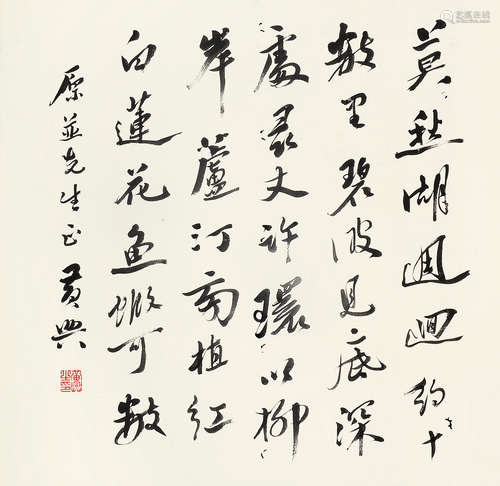 莫愁湖週迴約十
數里碧波見底深
處尋丈許環以柳
岸蘆汀両植紅
白蓮花魚蝦可數
原並先生正 黃興